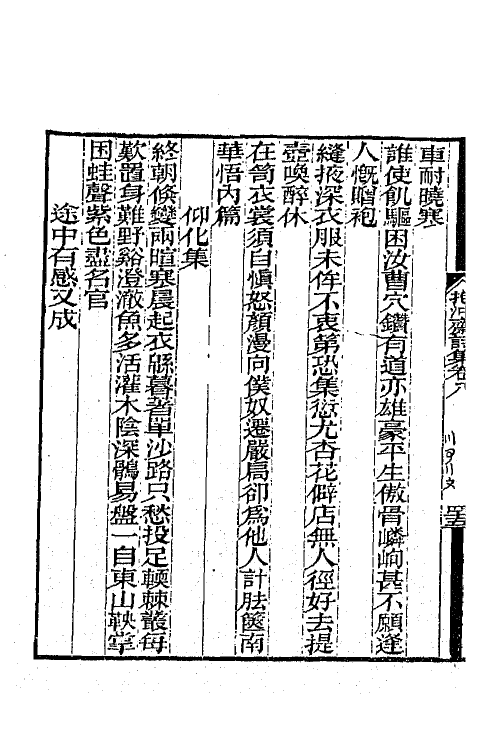 車耐曉寒
誰使飢驅困汝曹穴鑽有道亦雄豪平生傲骨嶙峋甚不願逢
人慨贈袍
縫掖深衣服未侔不衷第恐集愆尤杏花僻店無人徑好去提
壺喚醉休
在笥衣裳須自愼怒顏漫向僕奴遷嚴扃卻爲他人計胠篋南
華悟內篇
仰化集
終朝倐變兩暄寒晨起衣緜暮著單沙路只愁投足輭棘叢每
歎置身難野谿澄澈魚多活灌木陰深鶻易盤一自東山鞅掌
困蛙聲紫色盡名官
途中有感又成
齋詩集卷八